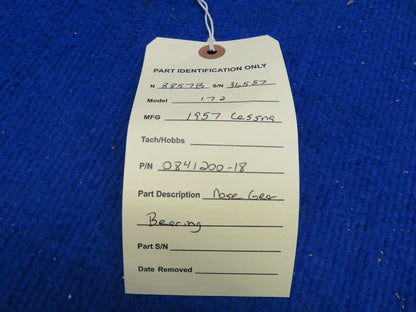 PART IDENTIFICATION ONLY
N 3857B S/N 36557
Model 172
MFG 1957 Cessna
Tach/Hobbs
P/N 0841200-18
Part Description Nose Gear
Bearing
Part S/N
Date Removed